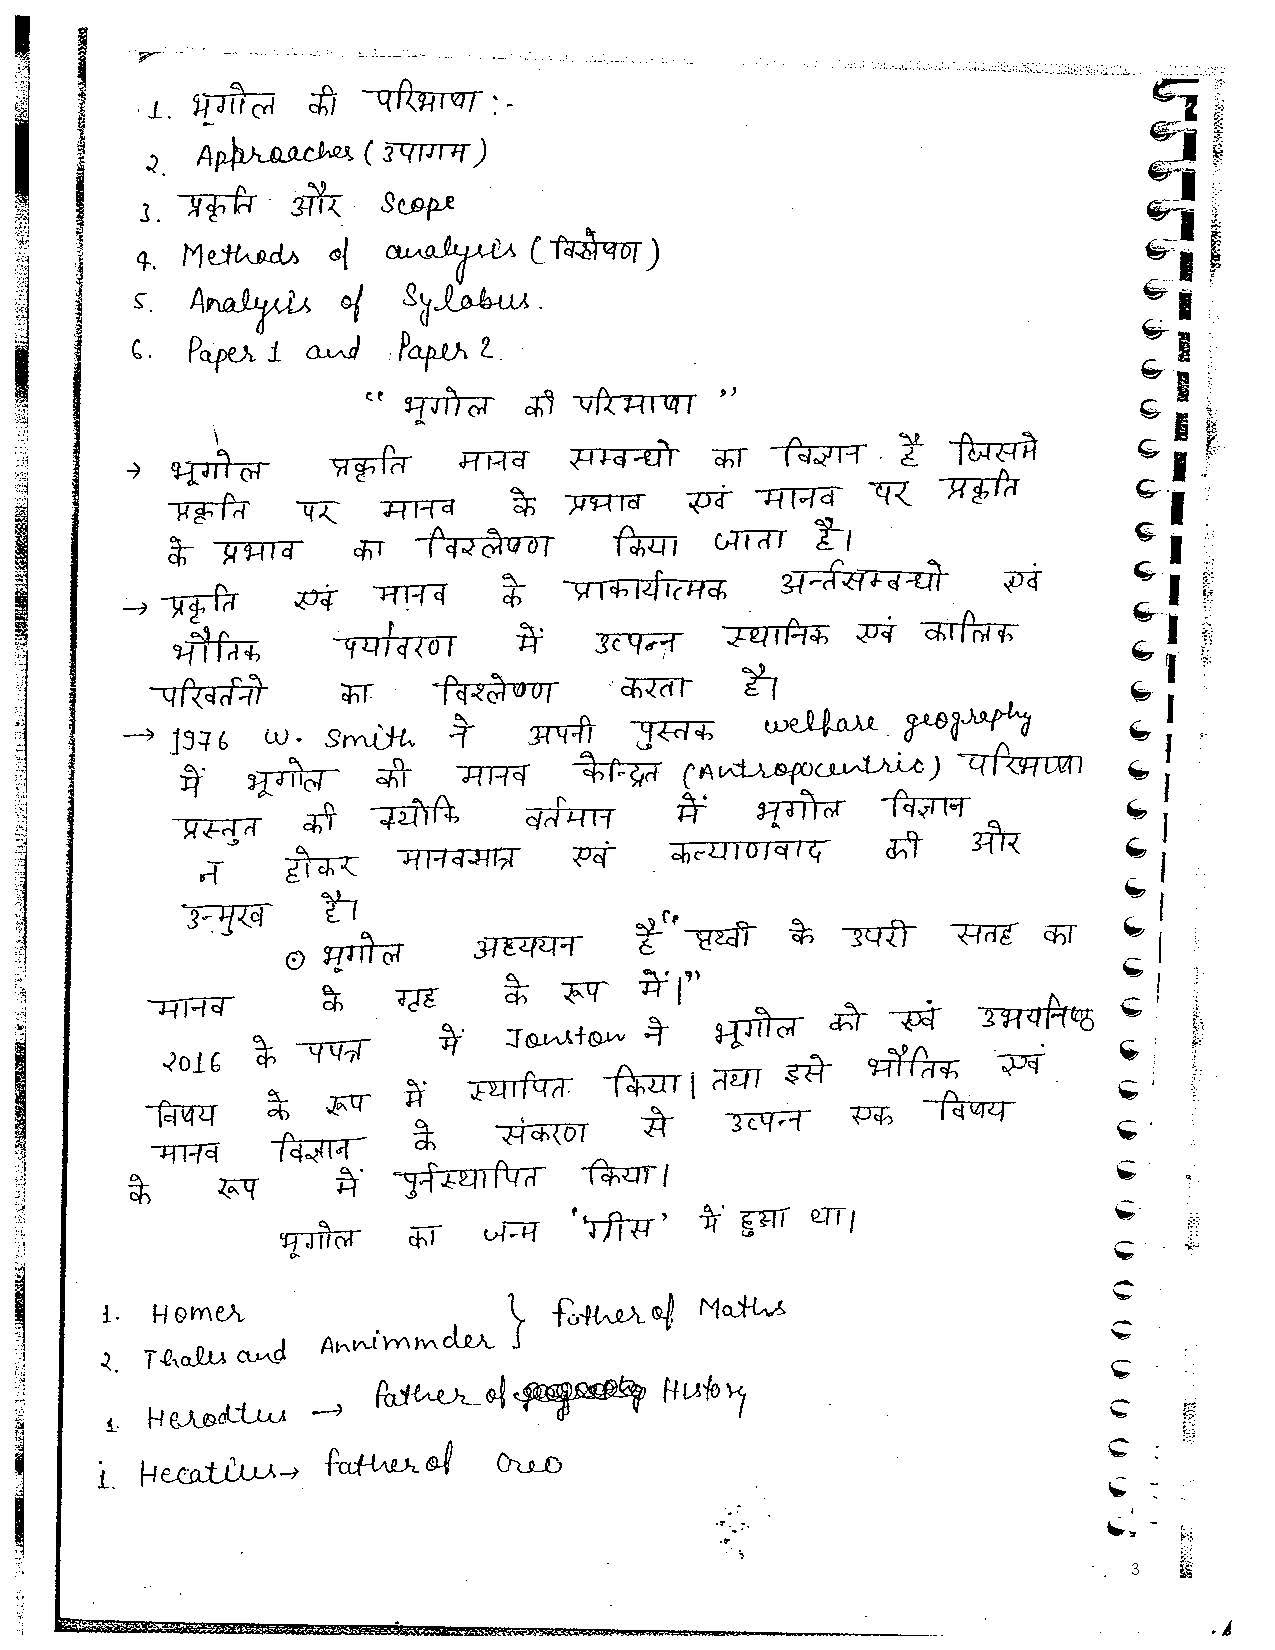 1. भूगोल की परिभाषा :-
2. Approaches (उपागम)
3. प्रकृति और Scope
4. Methods of analysis (विश्लेषण)
5. Analysis of Sylabus.
6. Paper 1 and Paper 2.
“ भूगोल की परिभाषा ”
→ भूगोल प्रकृति मानव सम्बन्धो का विज्ञान है जिसमे
प्रकृति पर मानव के प्रभाव एवं मानव पर प्रकृति
के प्रभाव का विश्लेषण किया जाता है।
→ प्रकृति एवं मानव के प्राकार्यात्मक अर्न्तसम्बन्धो एवं
भौतिक पर्यावरण में उत्पन्न स्थानिक एवं कालिक
परिवर्तनो का विश्लेषण करता है।
→ 1976 W. Smith ने अपनी पुस्तक welfare geography
में भूगोल की मानव केन्द्रित (Antropocentric) परिभाषा
प्रस्तुत की क्योकि वर्तमान में भूगोल विज्ञान
न होकर मानवमात्र एवं कल्याणवाद की और
उन्मुख है।
⊙ भूगोल अध्ययन है “ पृथ्वी के उपरी सतह का
मानव के गृह के रूप में।”
2016 के पपत्र में Jonston ने भूगोल को एवं उभयनिष्ठ
विषय के रूप में स्थापित किया। तथा इसे भौतिक एवं
मानव विज्ञान के संकरण से उत्पन्न एक विषय
के रूप में पुर्नस्थापित किया।
भूगोल का जन्म ‘ग्रीस’ में हुआ था।
1. Homer
2. Thales and Annimmder } father of Maths
1. Herodtus → father of History
1. Hecatius → father of Geo
3